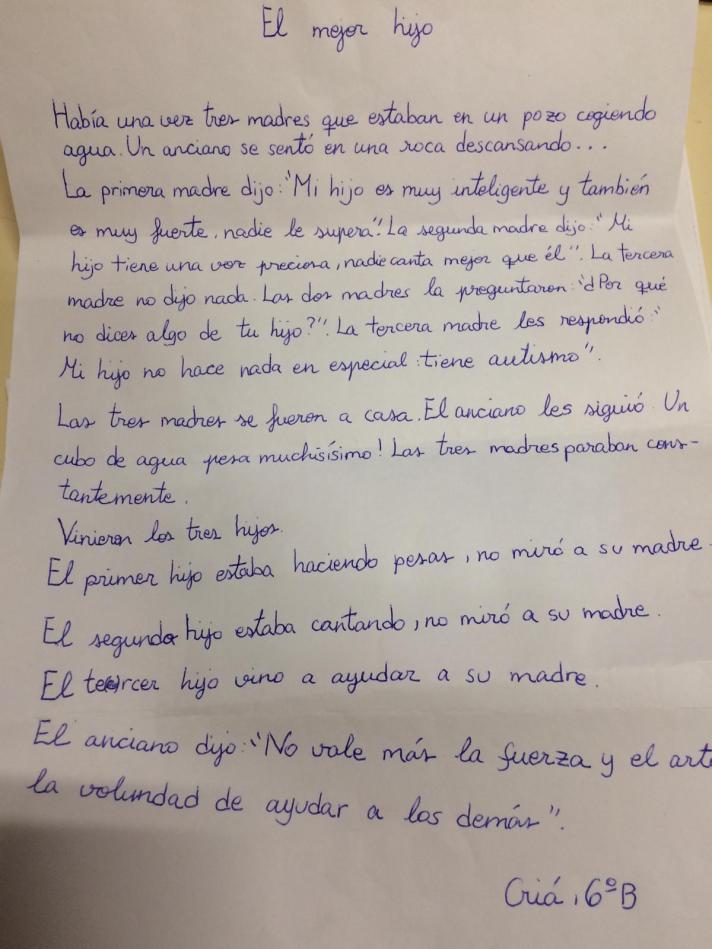 El mejor hijo
Había una vez tres madres que estaban en un pozo cogiendo
agua. Un anciano se sentó en una roca descansando...
La primera madre dijo: "Mi hijo es muy inteligente y también
es muy fuerte, nadie le supera". La segunda madre dijo: "Mi
hijo tiene una voz preciosa, nadie canta mejor que él". La tercera
madre no dijo nada. Las dos madres la preguntaron: "¿Por qué
no dices algo de tu hijo?". La tercera madre les respondió: "
Mi hijo no hace nada en especial: tiene autismo".
Las tres madres se fueron a casa. El anciano les siguió. Un
cubo de agua pesa muchisísimo! Las tres madres paraban cons-
tantemente.
Vinieron los tres hijos.
El primer hijo estaba haciendo pesas, no miró a su madre.
El segundo hijo estaba cantando, no miró a su madre.
El tercer hijo vino a ayudar a su madre.
El anciano dijo: "No vale más la fuerza y el arte
la volundad de ayudar a los demás".
Criá, 6ºB